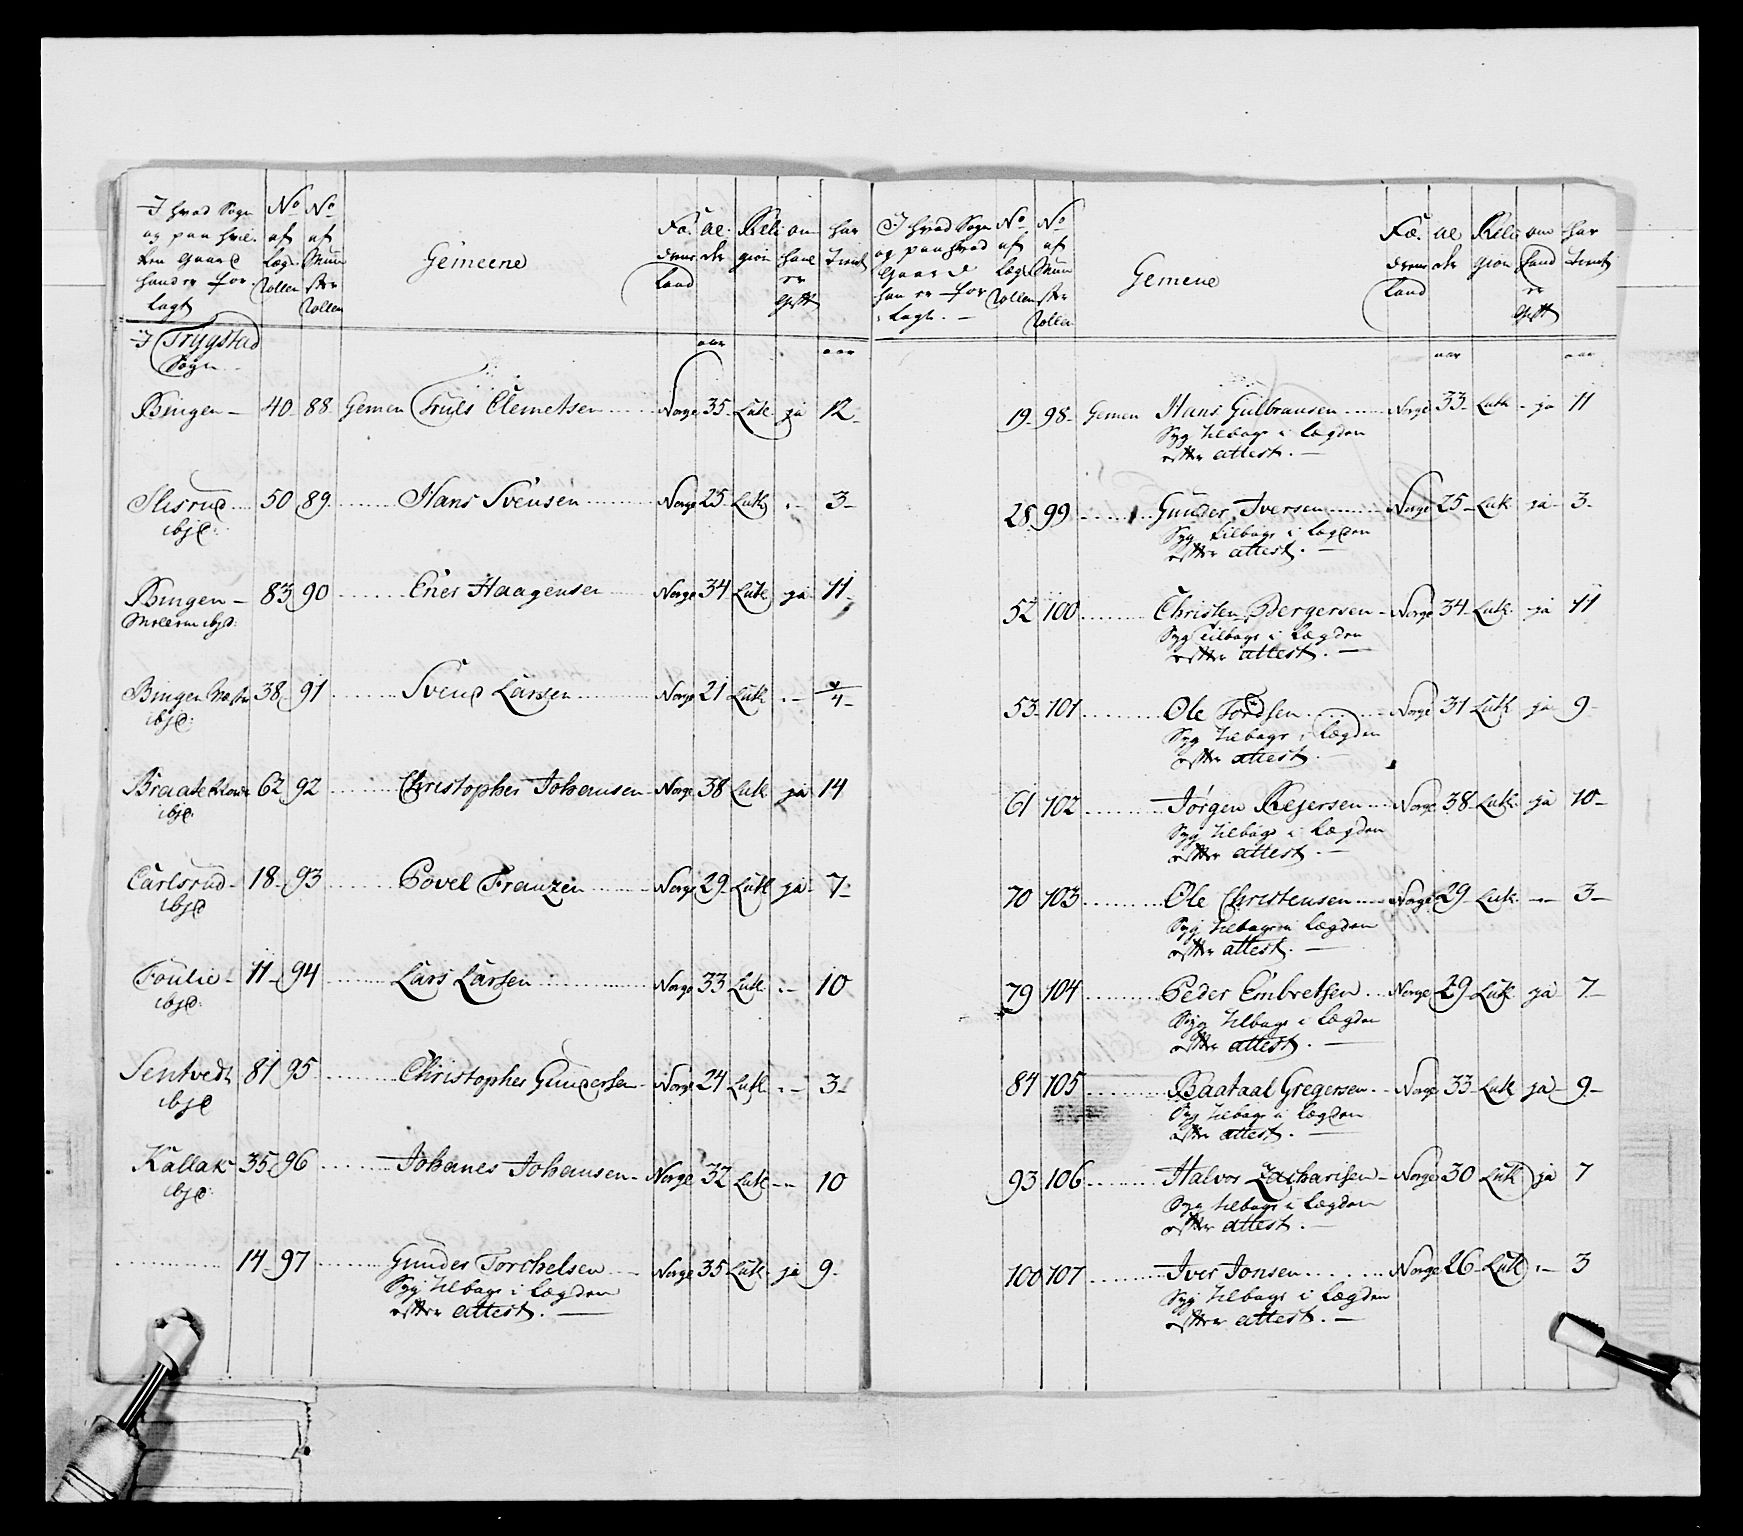 I hvad Sogn
og paa hvil-
ken Gaard
hand er for
lagt
No af Lægs Rollen
No af Mun ster Rollen
Gemeene
Fæ. drene Land
al der
Reli gion
om hand er Gift
har tient
I Trygstad
Sogn
aar
aar
Bingen — 40 88 Gemen Truls Clemetsen Norge 35 Luth ja 12
Slisrud 50 89 Hans Svensen Norge 25 Luth 3
ibjd:
Bingen — 83 90 Ener Haagensen Norge 34 Luth ja 11
ibjd:
Bingen 38 91 Svend Larsen Norge 21 Luth 1/4
ibjd:
Braate 62 92 Christopher Johansen Norge 38 Luth ja 14
ibjd.
Carlsrud 18 93 Povel Franzen Norge 29 Luth ja 7
ibjd
Foulie 11 94 Lars Larsen Norge 33 Luth 10
ibjd:
Sentvedt 81 95 Christopher Gundersen Norge 24 Luth 3
ibjd
Kallak 35 96 Johanes Johansen Norge 32 Luth 10
ibjd:
14 97 Gunder Torchelsen Norge 35 Luth ja 9
Syg tilbage i Lægden
efter attest. —
I hvad Sogn
og paa hvad
Gaard
han er for
lagt. —
No af Lægs Rollen
No af Mun ster Rollen
Gemene
Fæ. drene Land
al der
Reli gion
om hand er Gift
har tient
aar
aar
19 98 Gemen Hans Gulbransen Norge 33 Luth ja 11
Syg tilbage i Lægden
efter attest. —
28 99 Gunder Iversen Norge 25 Luth ja 3
Syg tilbage i Lægden
efter attest. —
52 100 Christen Bergersen Norge 34 Luth ja 11
Syg tilbage i Lægden
efter attest. —
53 101 Ole Tordsen Norge 31 Luth ja 9
Syg tilbage i Lægden
efter attest.
61 102 Jørgen Rejersen Norge 38 Luth ja 10
Syg tilbage i Lægden
efter attest. —
70 103 Ole Christensen Norge 29 Luth 3
Syg tilbage i Lægden
efter attest. —
79 104 Peder Embretsen Norge 29 Luth ja 7
Syg tilbage i Lægden
efter attest. —
84 105 Baataal Gregersen Norge 33 Luth ja 9
Syg tilbage i Lægden
efter attest. —
93 106 Halvor Zacharisen Norge 30 Luth ja 7
Syg tilbage i Lægden
efter attest. —
100 107 Iver Jonsen Norge 26 Luth 3
Syg tilbage i Lægden
efter attest. —